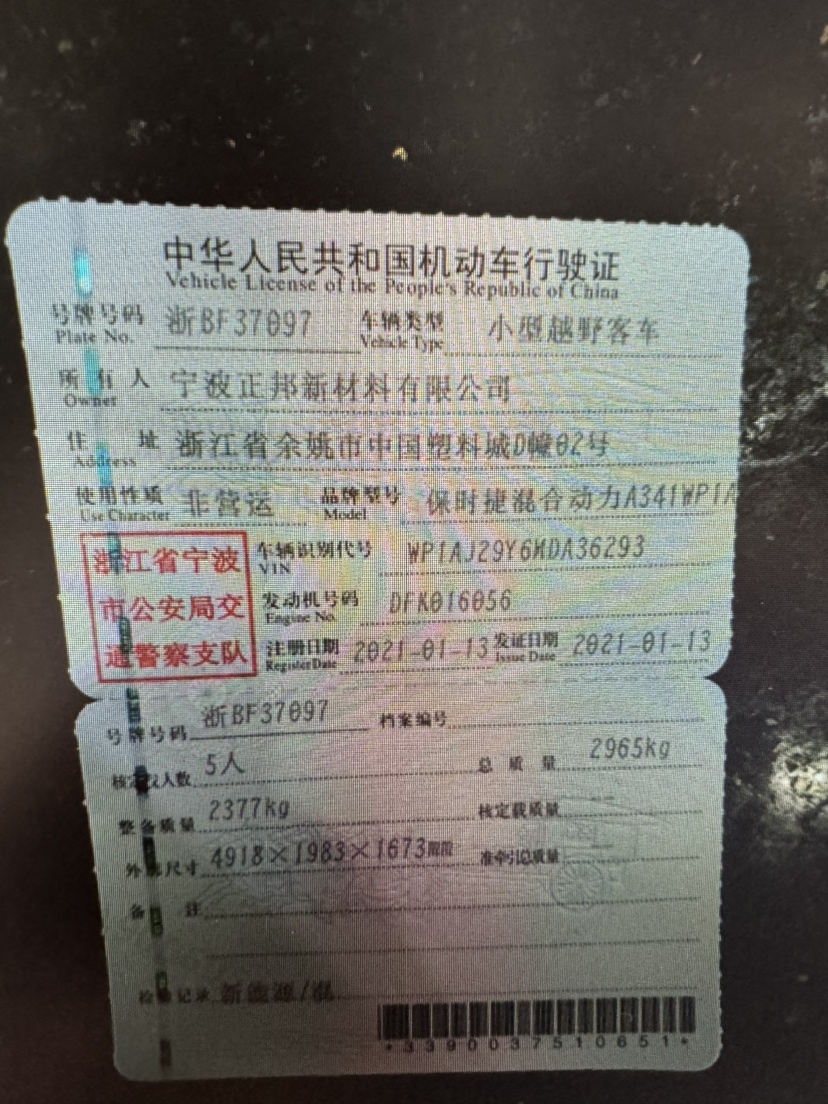 中华人民共和国机动车行驶证
Vehicle License of the People's Republic of China
号牌号码 浙BF37097 车辆类型 小型越野客车
Plate No. Vehicle Type
所有人 宁波正邦新材料有限公司
Owner
住址 浙江省余姚市中国塑料城D幢02号
Address
使用性质 非营运 品牌型号 保时捷混合动力A341WP1A
Use Character Model
浙江省宁波 车辆识别代号 WP1AJ29Y6MDA36293
VIN
市公安局交 发动机号码 DFK016056
Engine No.
通警察支队 注册日期 2021-01-13 发证日期 2021-01-13
Register Date Issue Date
号牌号码 浙BF37097 档案编号
核定载人数 5人 总质量 2965kg
整备质量 2377kg 核定载质量
外廓尺寸 4918×1983×1673mm 准牵引总质量
备注
检验记录 新能源/混
*3390037510651*